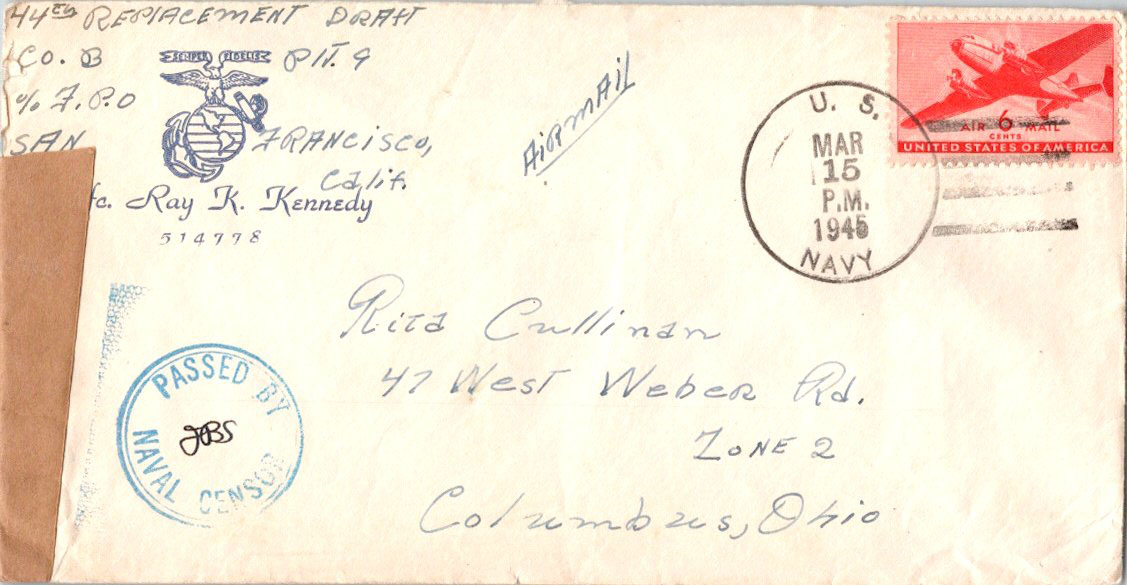 44th REPLACEMENT DRAFT
CO. B PLT. 9
SEMPER FIDELIS
% F.P.O
SAN FRANCISCO,
Calif.
fc. Ray K. Kennedy
514778
AiRMAiL
U. S.
MAR
15
P.M.
1945
NAVY
AIR 6 MAIL
CENTS
UNITED STATES OF AMERICA
Rita Cullinan
47 West Weber Rd.
ZONE 2
Columbus, Ohio
PASSED BY
JBS
NAVAL CENSOR